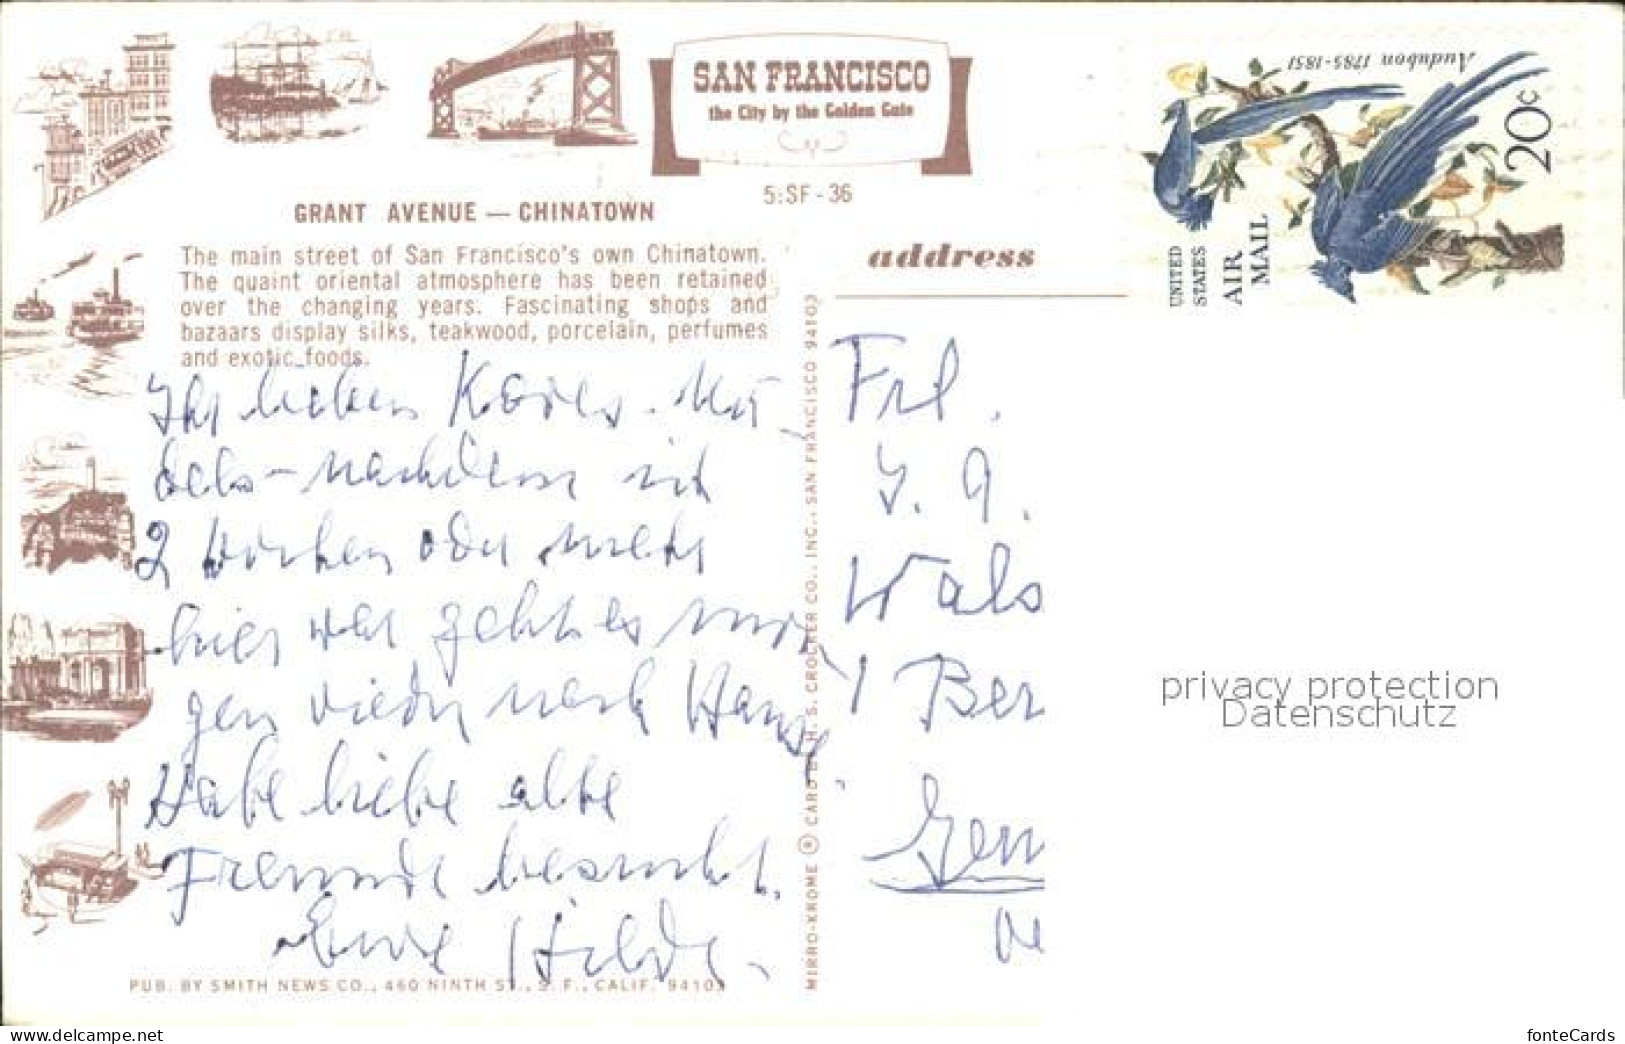 SAN FRANCISCO
the City by the Golden Gate
5:SF-36
GRANT AVENUE — CHINATOWN
The main street of San Francisco's own Chinatown.
The quaint oriental atmosphere has been retained
over the changing years. Fascinating shops and
bazaars display silks, teakwood, porcelain, perfumes
and exotic foods.
Ihr lieben
nachdem ich
2 Wochen oder mehr
hier war geht es mor
gen wieder nach Hause.
Habe liebe alte
Freunde besucht.
Eure Hilde.
PUB. BY SMITH NEWS CO., 460 NINTH ST., S. F., CALIF. 94103
MIRRO-KROME ® CARD BY H. S. CROCKER CO., INC., SAN FRANCISCO 94103
address
Audubon 1785-1851
20c
UNITED
STATES
AIR
MAIL
Frl.
Wals
Ber
privacy protection
Datenschutz
https://www.ansichtskarten-center.de
fonteCards